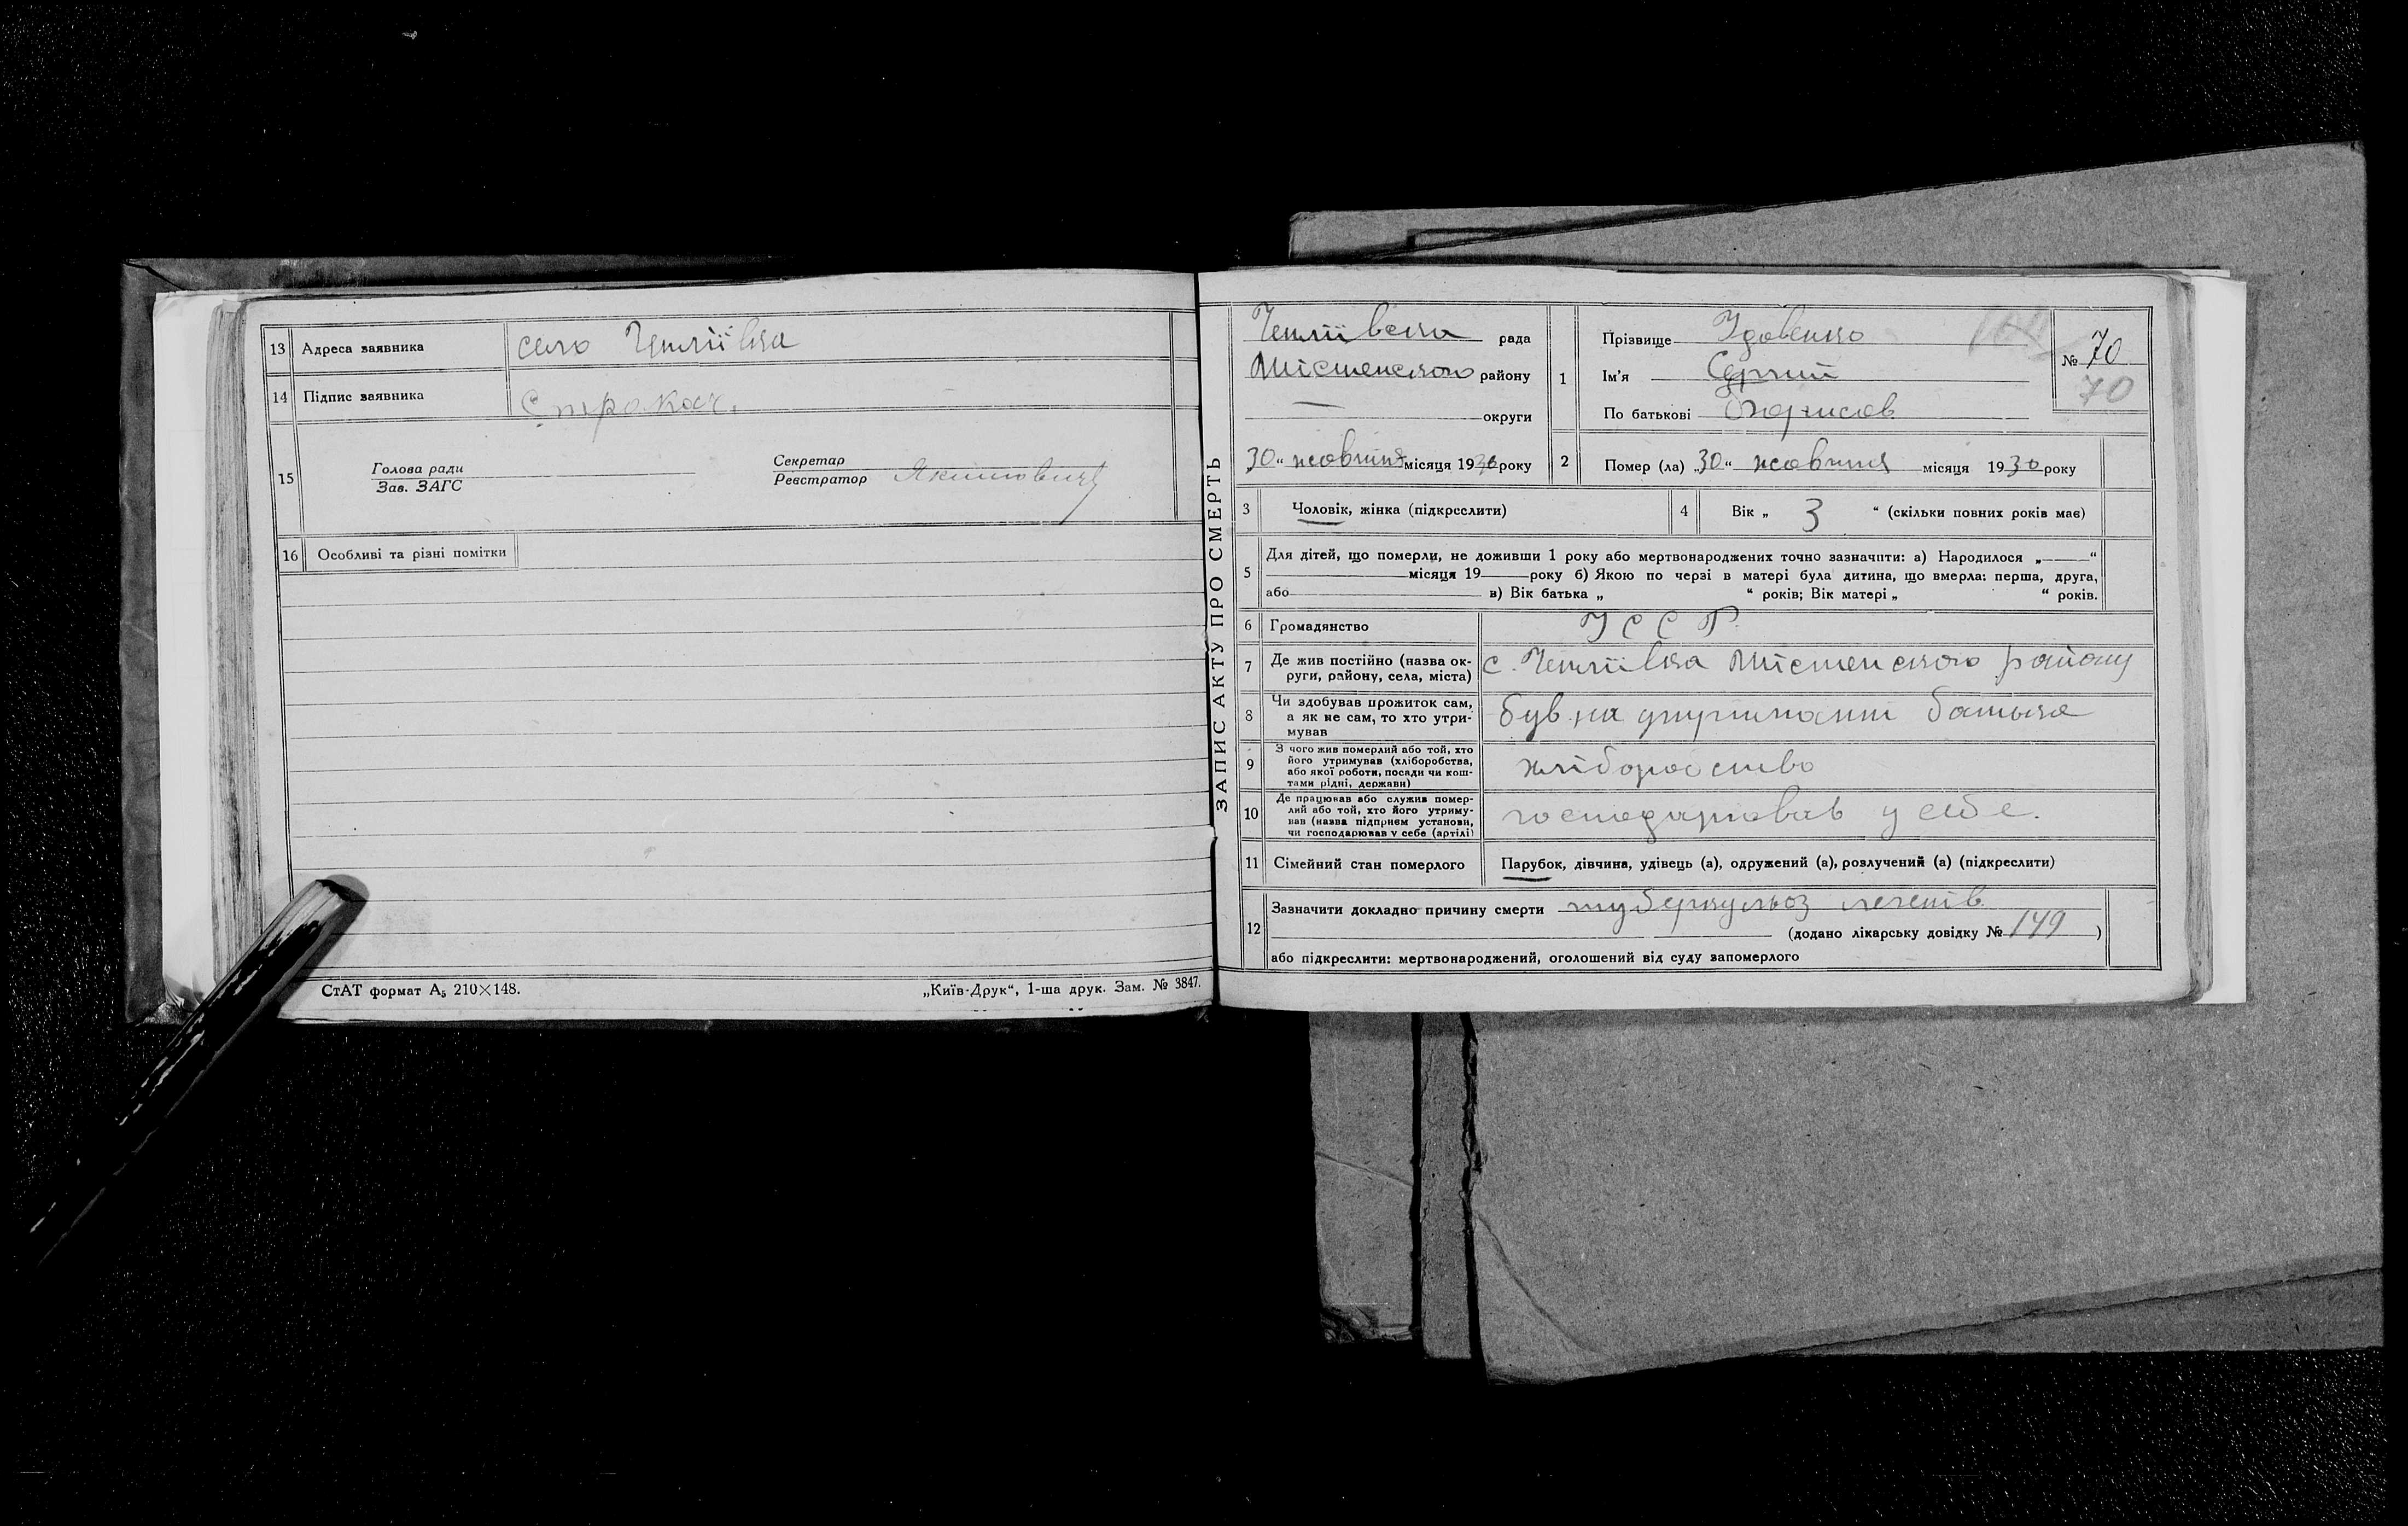 13 Адреса заявника село Чепліївка
14 Підпис заявника Строкач.
15 Голова ради
Зав. ЗАГС
Секретар
Реєстратор
16 Особливі та різні помітки
СтАТ формат А₅ 210×148.
„Київ-Друк“, 1-ша друк. Зам. № 3847.
ЗАПИС АКТУ ПРО СМЕРТЬ
рада
району
округи
30 “ жовтня місяця 1930 року
1 Прізвище Удовенко
Ім'я Сергій
По батькові
№ 70
70
2 Помер (ла) „30“ жовтня місяця 1930 року
3 Чоловік, жінка (підкреслити)
4 Вік „ 3 “ (скільки повних років має)
5 Для дітей, що померли, не доживши 1 року або мертвонароджених точно зазначити: а) Народилося „ “
місяця 19 року б) Якою по черзі в матері була дитина, що вмерла: перша, друга,
або в) Вік батька „ “ років; Вік матері „ “ років.
6 Громадянство УССР
7 Де жив постійно (назва ок-
руги, району, села, міста)
с. Чепліївка району
8 Чи здобував прожиток сам,
а як не сам, то хто утри-
мував
був на утриманні батька
9 З чого жив померлий або той, хто
його утримував (хліборобства,
або якої роботи, посади чи кош-
тами рідні, держави)
хліборобство
10 Де працював або служив помер-
лий або той, хто його утриму-
вав (назва підприєм установи,
чи господарював у себе (артілі)
господарював у себе.
11 Сімейний стан померлого Парубок, дівчина, удівець (а), одружений (а), розлучений (а) (підкреслити)
12 Зазначити докладно причину смерти туберкульоз легенів
(додано лікарську довідку № 149 )
або підкреслити: мертвонароджений, оголошений від суду запомерлого